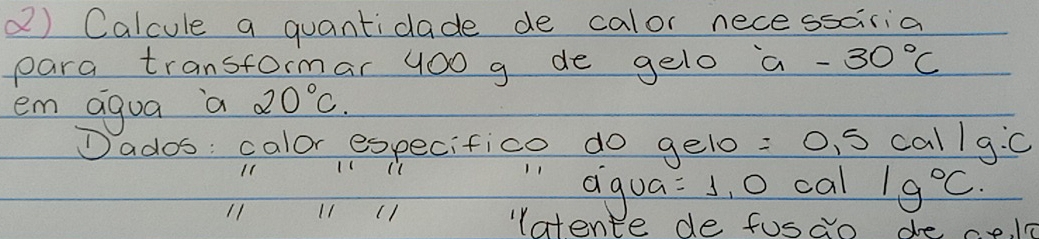 2) Calcule a quantidade de calor necessária
para transformar 400 g de gelo à -30°C
em água à 20°C.
Dados: calor específico do gelo = 0,5 cal/g°C
" " " " água = 1,0 cal/g°C.
" " " "latente de fusão de gelo